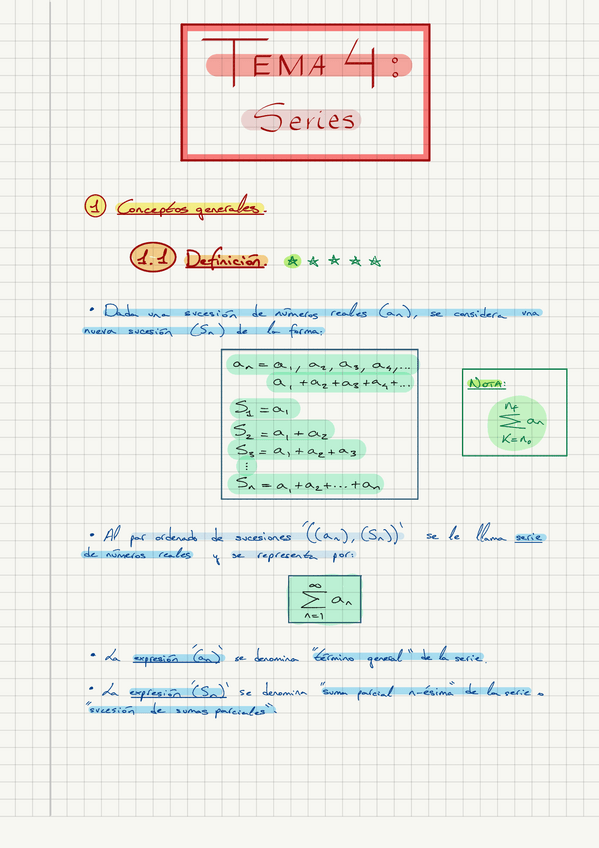 TEMA 4:
Series
1 Conceptos generales.
1.1 Definición.
• Dada una sucesión de números reales (an), se considera una
nueva sucesión (Sn) de la forma:
an = a1, a2, a3, a4,...
a1 + a2 + a3 + a4 + ...
S1 = a1
S2 = a1 + a2
S3 = a1 + a2 + a3
⋮
Sn = a1 + a2 + ... + an
NOTA:
nf
∑ an
K = n0
• Al par ordenado de sucesiones '((an), (Sn))' se le llama serie
de números reales y se representa por:
∞
∑ an
n=1
• La expresión '(an)' se denomina "término general" de la serie.
• La expresión '(Sn)' se denomina "suma parcial n-ésima" de la serie o
"sucesión de sumas parciales".